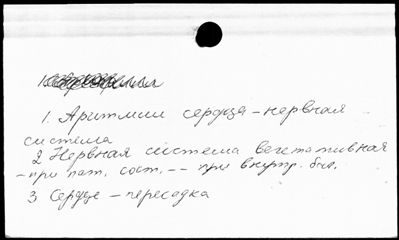 1. Аритмии сердца - нервная
система
2 Нервная система вегетативная
- при пат. сост. -- при внутр. бол.
3 Сердце - пересадка